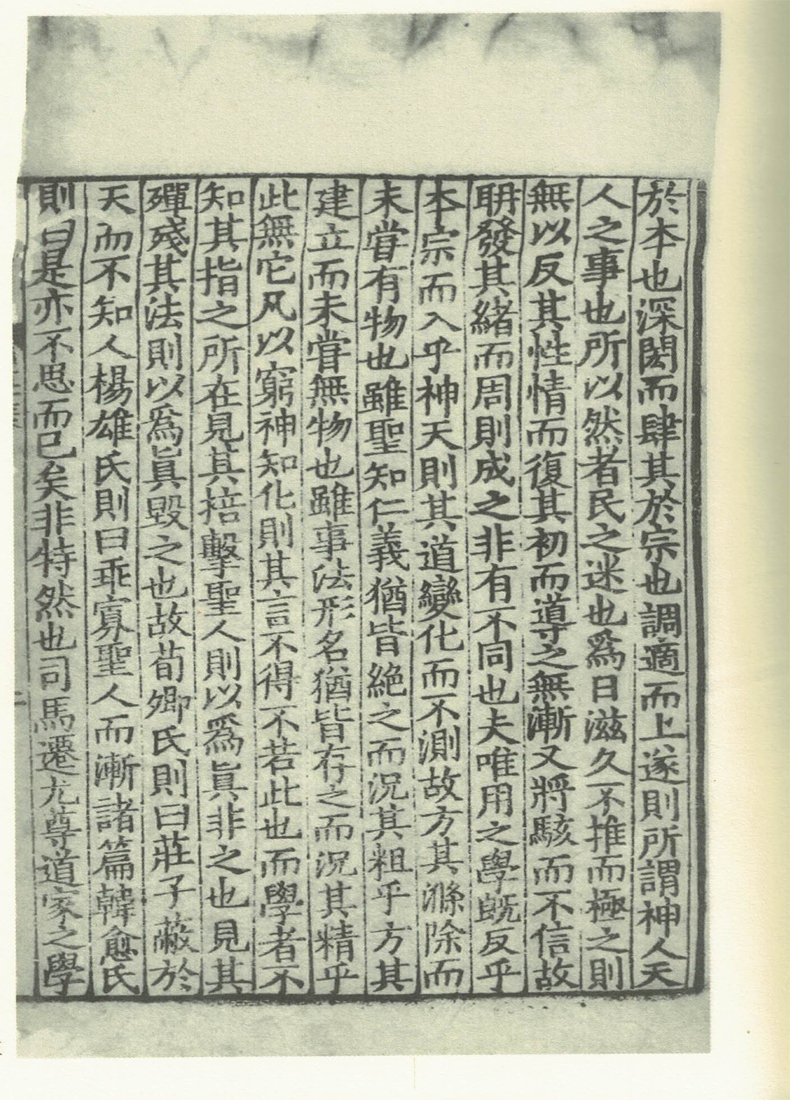 於本也深閎而肆其於宗也調適而上遂則所謂神人天
人之事也所以然者民之迷也爲日滋久不推而極之則
無以反其性情而復其初而導之無漸又將駭而不信故
聃發其緒而周則成之非有不同也夫唯用之學旣反乎
本宗而入乎神天則其道變化而不測故方其滌除而
未嘗有物也雖聖知仁義猶皆絶之而況其粗乎方其
建立而未嘗無物也雖事法形名猶皆存之而況其精乎
此無它凡以窮神知化則其言不得不若此也而學者不
知其指之所在見其掊擊聖人則以爲眞非之也見其
殫殘其法則以爲眞毀之也故荀卿氏則曰莊子蔽於
天而不知人楊雄氏則曰乖寡聖人而漸諸篇韓愈氏
則曰是亦不思而已矣非特然也司馬遷尤尊道家之學